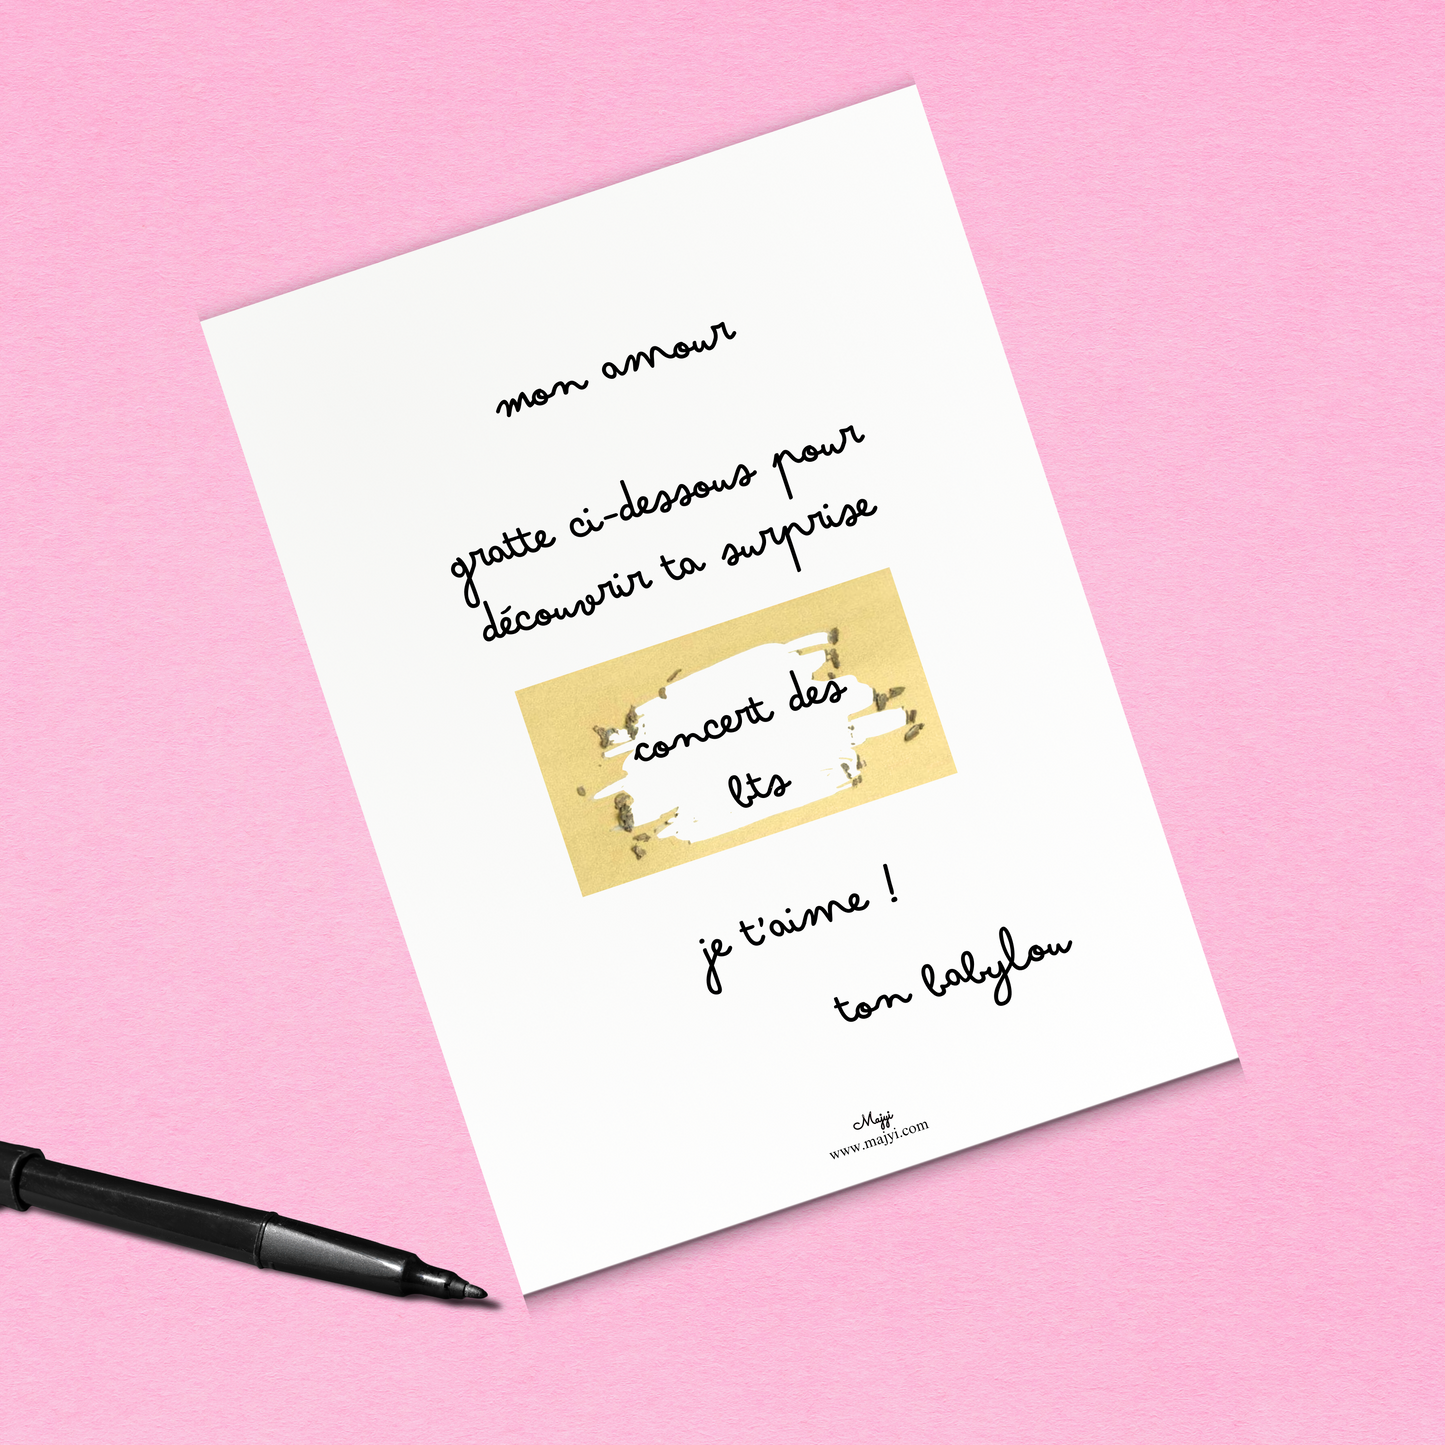 mon amour
gratte ci-dessous pour
découvrir ta surprise
concert des
bts
je t'aime !
ton babylou
Majyi
www.majyi.com